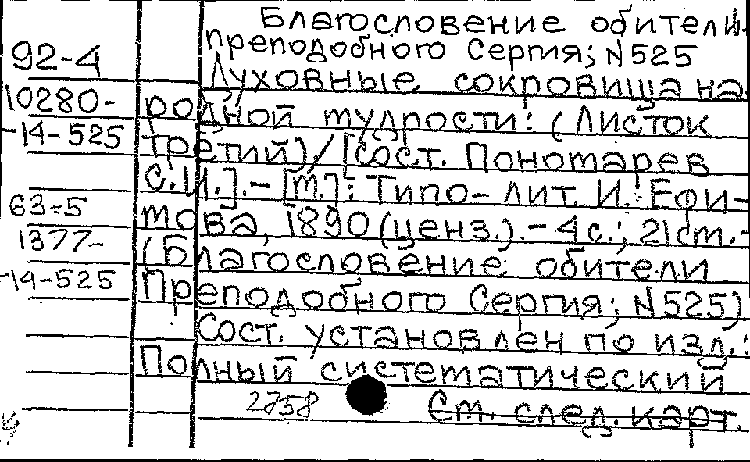 Благословение обители
преподобного Сергия; N525
92-4
Духовные сокровища на-
10280-
родной мудрости: (Листок
-14-525
третий)/[сост. Пономарев
С.И.].-[М.]: Типо-лит. И. Ефи-
63-5
мова, 1890(ценз.).-4с.; 21см.-
1377-
(Благословение обители
-14-525
Преподобного Сергия; N525)
Сост. установлен по изд.:
Полный систематический
2758
См. след. карт.